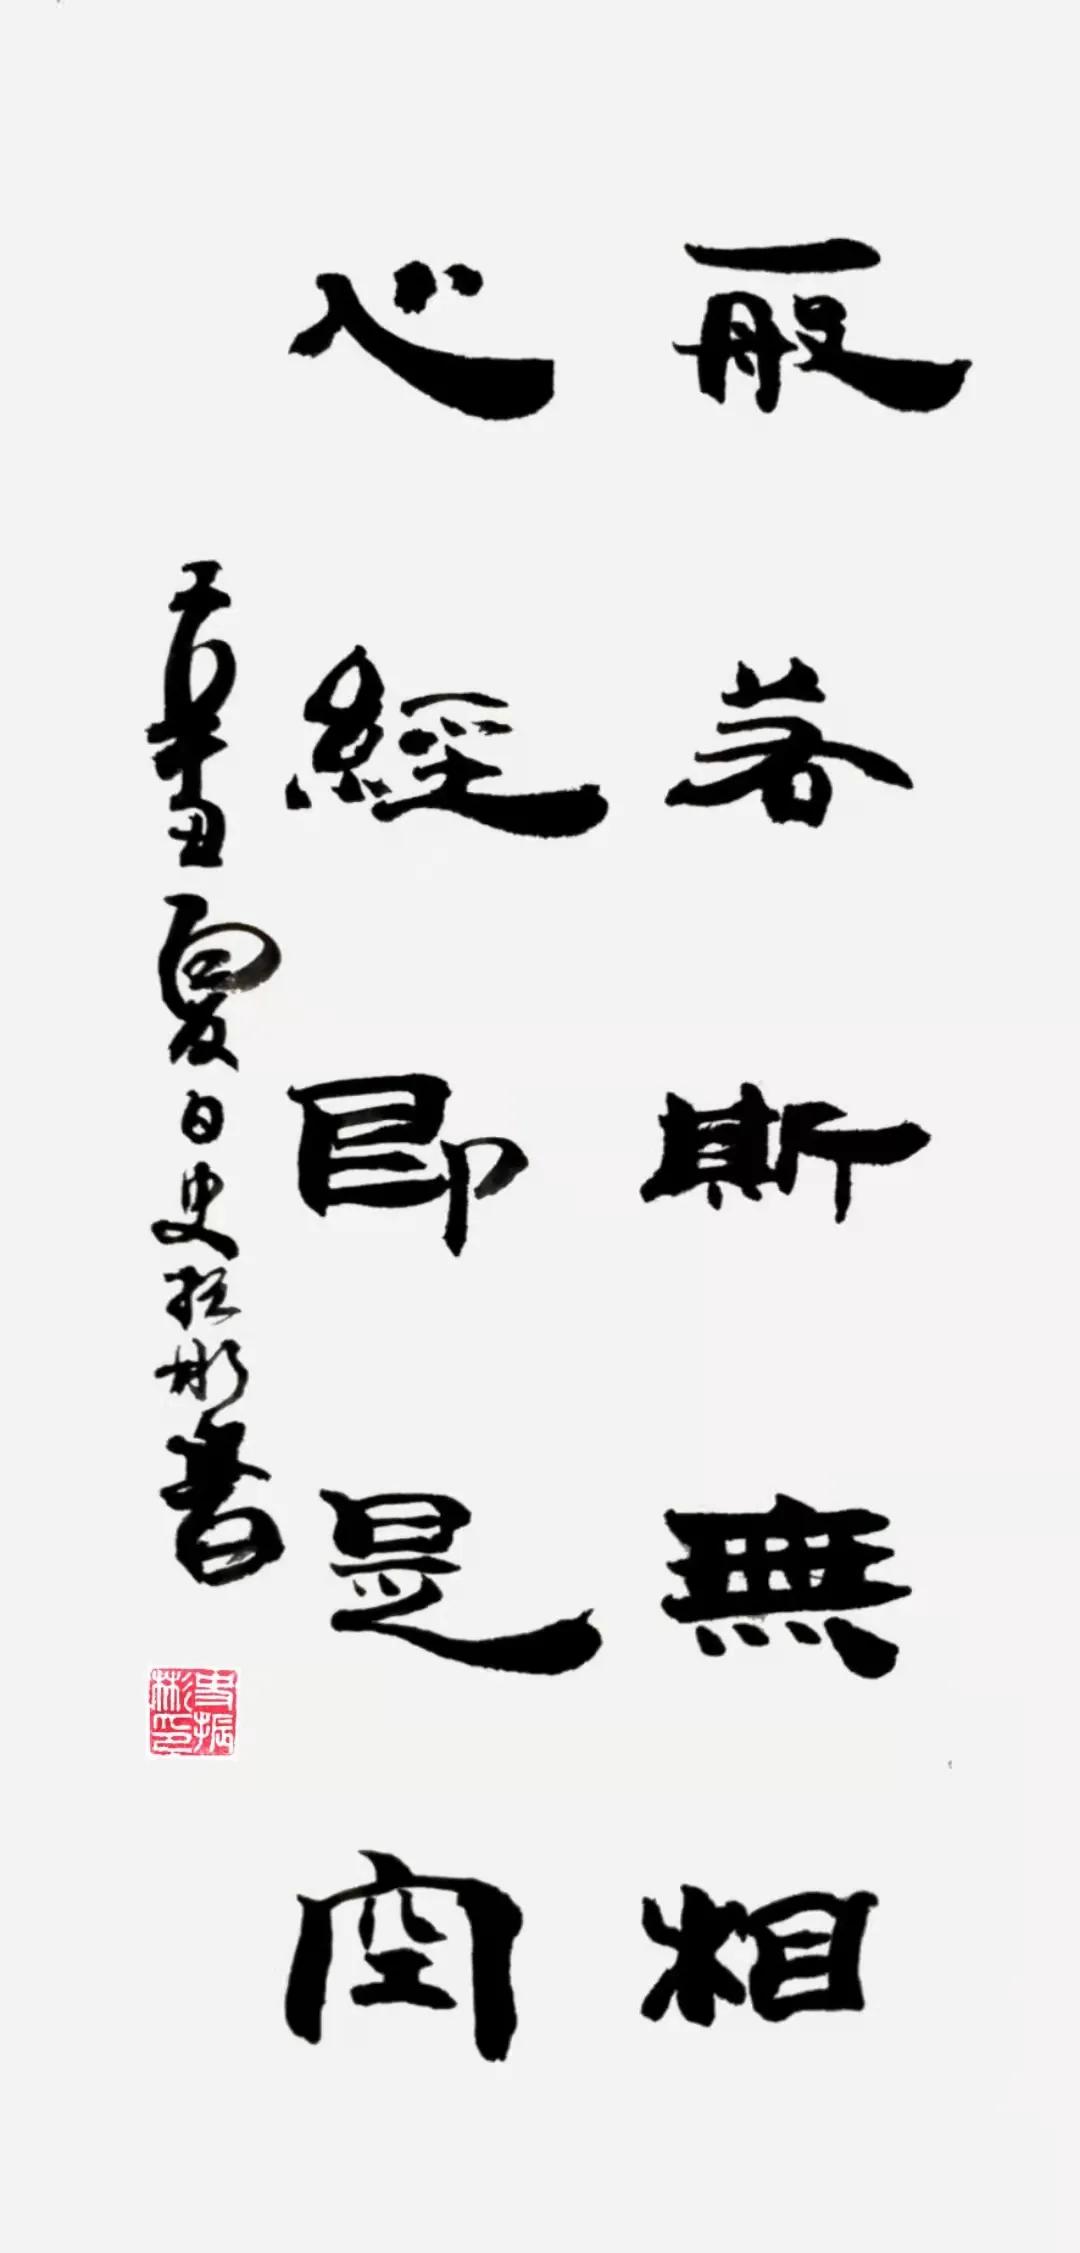 般若斯無相
心經即是空
辛丑夏日史振彬書
史振彬印